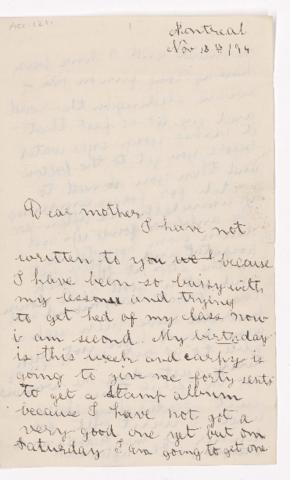 Montreal
Nov 18th/94
Dear mother,
I have not
written to you we because
I have been so baisy with
my lessons and trying
to get hed of my class now
i am second. My birthday
is this week and carpy is
going to give me forty sents
to get a stamp album
because I have not got a
very good one yet but on
Saturday I am going to get one